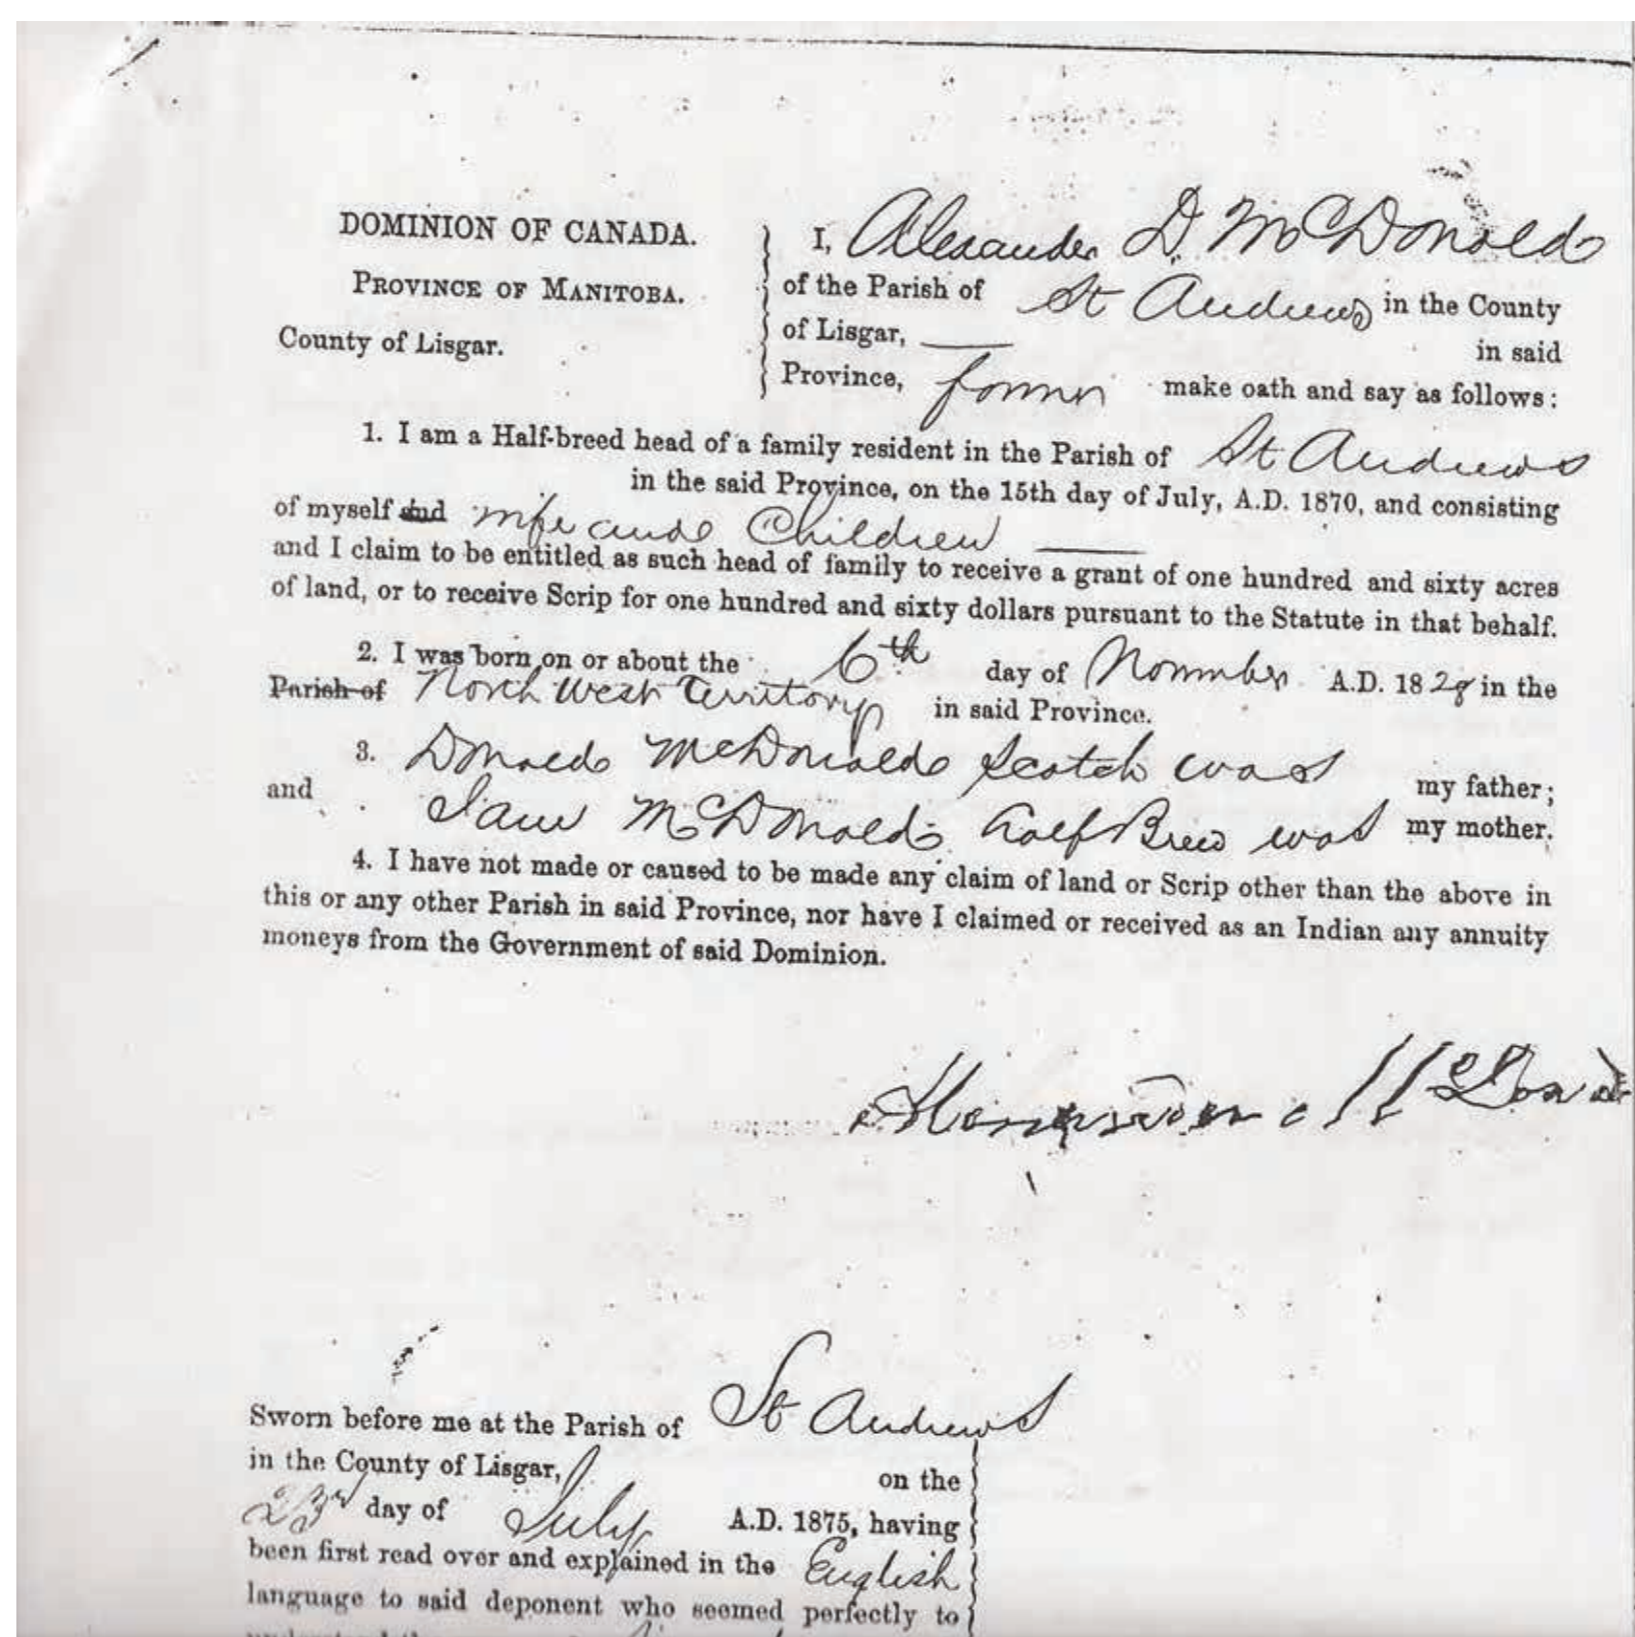 DOMINION OF CANADA.
PROVINCE OF MANITOBA.
County of Lisgar.
I, Alexander D. McDonald
of the Parish of St Andrews in the County
of Lisgar, in said
Province, farmer make oath and say as follows:
1. I am a Half-breed head of a family resident in the Parish of St Andrews
in the said Province, on the 15th day of July, A.D. 1870, and consisting
of myself and wife and Children
and I claim to be entitled as such head of family to receive a grant of one hundred and sixty acres
of land, or to receive Scrip for one hundred and sixty dollars pursuant to the Statute in that behalf.
2. I was born on or about the 6th day of November A.D. 1828 in the
Parish of North West Territory in said Province.
3. Donald McDonald Scotch was my father;
and Jane McDonald half Breed was my mother.
4. I have not made or caused to be made any claim of land or Scrip other than the above in
this or any other Parish in said Province, nor have I claimed or received as an Indian any annuity
moneys from the Government of said Dominion.
Sworn before me at the Parish of St Andrews
in the County of Lisgar, on the
23rd day of July A.D. 1875, having
been first read over and explained in the English
language to said deponent who seemed perfectly to